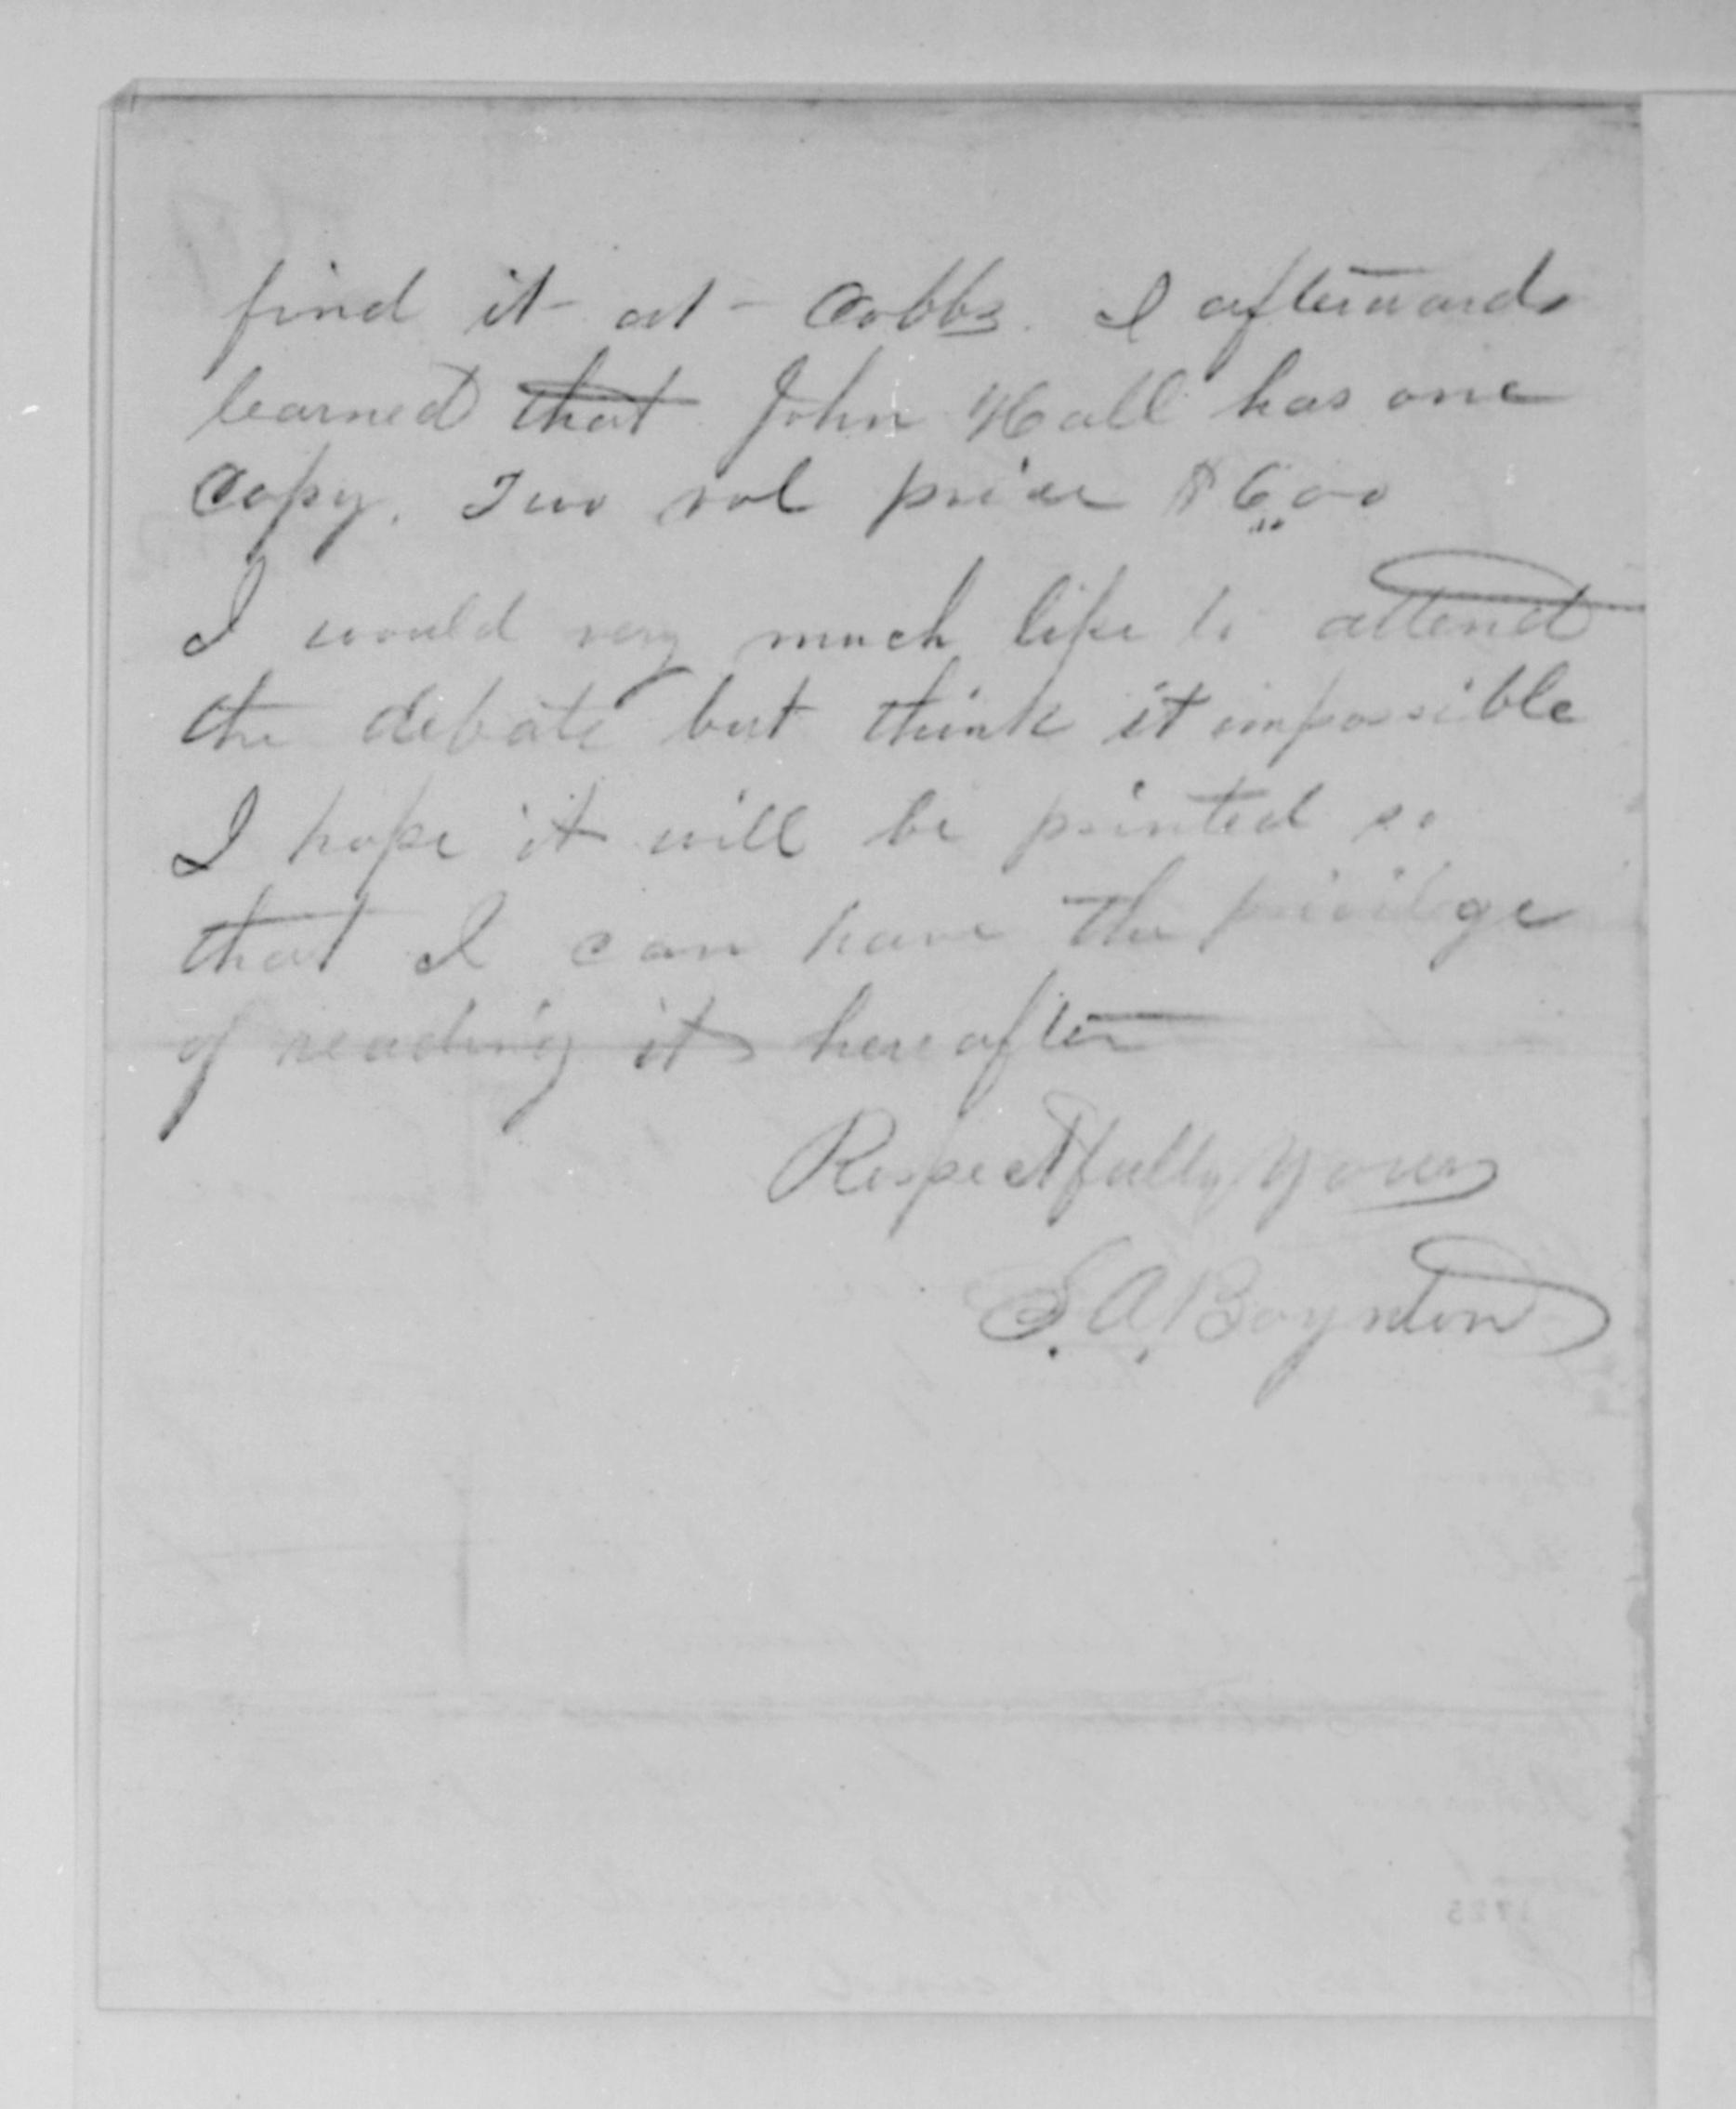 find it at Cobbs. I afterwards
learned that John Hall has one
Copy. Two vol price $6.00
I would very much like to attend
the debate but think it impossible
I hope it will be printed so
that I can have the privilege
of reading it hereafter
Respectfully Yours
S. A. Boynton